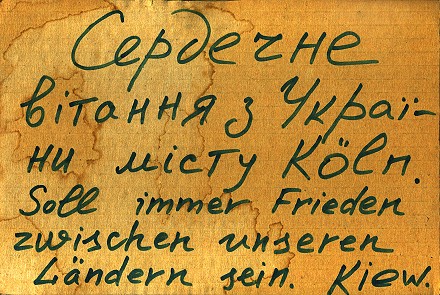 Сердечне
вітання з Украї-
ни місту Köln.
Soll immer Frieden
zwischen unseren
Ländern sein. Kiew.